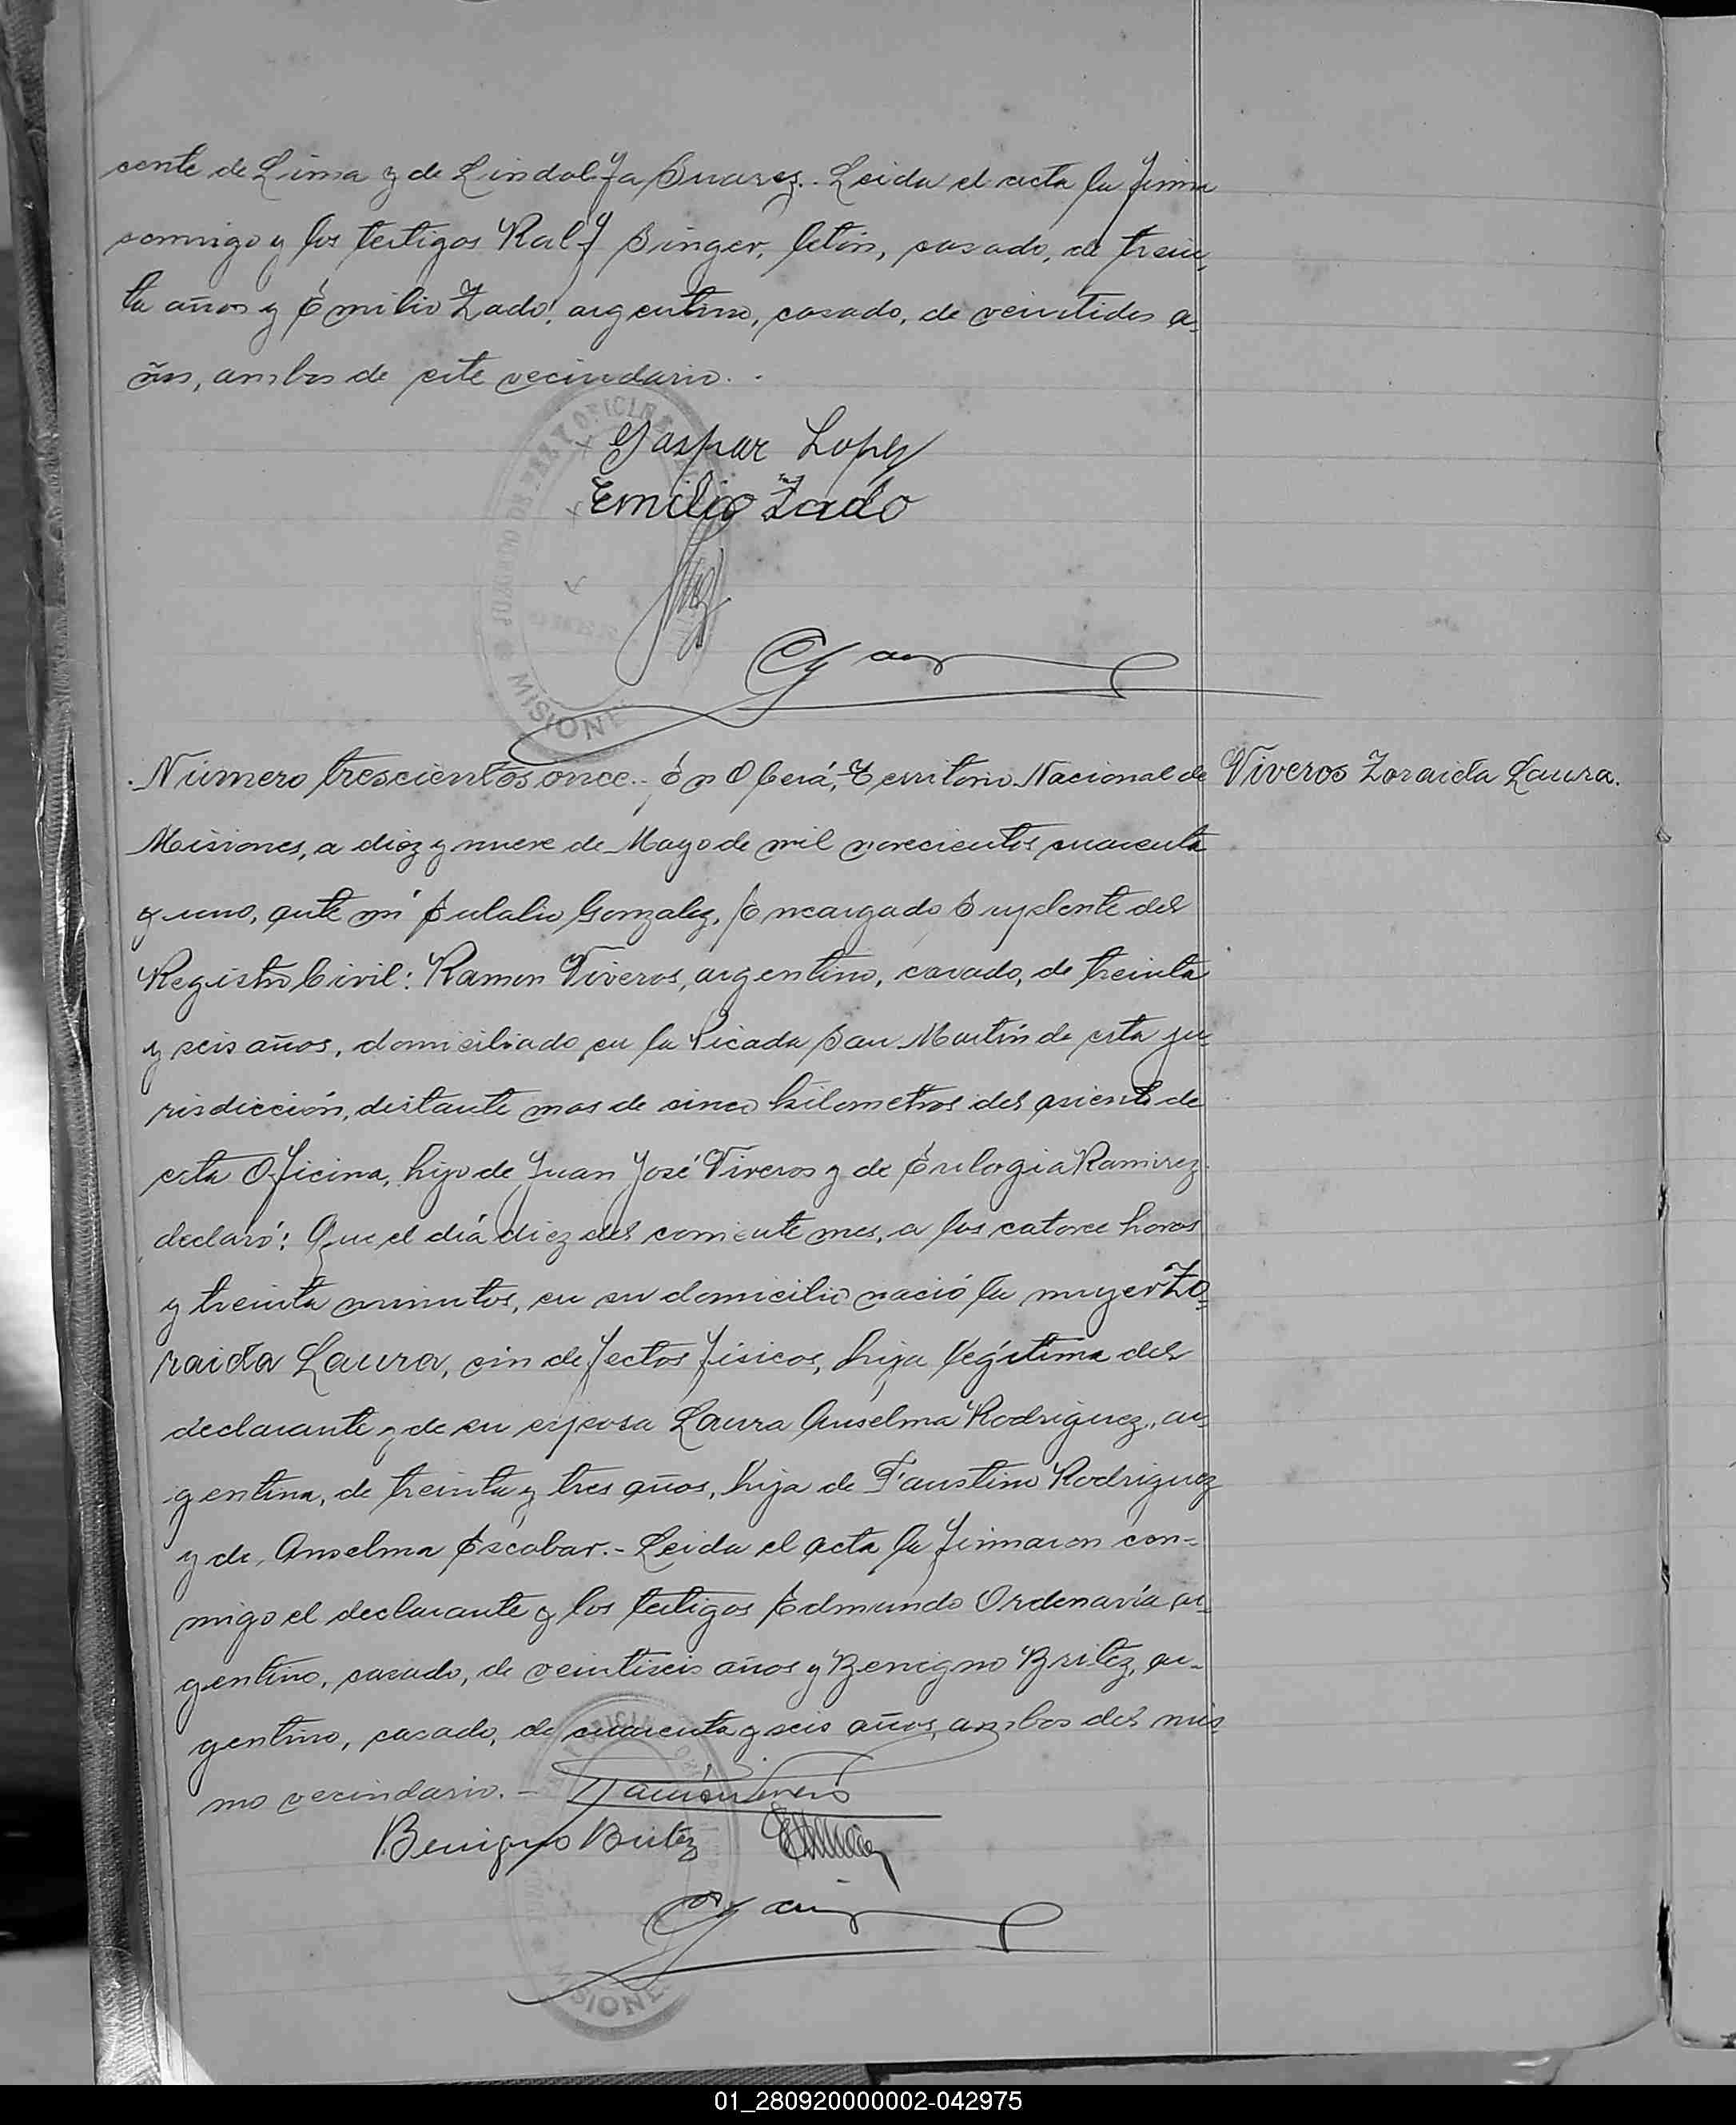 cente de Lima y de Lindolfa Suarez.- Leida el acta la firma
conmigo y los testigos Ralf Singer, letón, casado, de trein-
ta años y Emilio Zado, argentino, casado, de veintidos a-
ños, ambos de este vecindario.-
Gaspar Lopez
Emilio Zado
MISIONES
Número trescientos once.- En Oberá, Territorio Nacional de
Viveros Zoraida Laura.
Misiones, a diez y nueve de Mayo de mil novecientos cuarenta
y uno, ante mí Eulalio Gonzalez, Encargado Suplente del
Registro Civil: Ramon Viveros, argentino, casado, de treinta
y seis años, domiciliado en la Picada San Martín de esta ju-
risdicción, distante mas de cinco kilometros del asiento de
esta Oficina, hijo de Juan José Viveros y de Eulogia Ramirez
declaró: Que el día diez del corriente mes, a las catorce horas
y treinta minutos, en su domicilio nació la mujer Zo-
raida Laura, sin defectos físicos, hija legítima del
declarante y de su esposa Laura Anselma Rodriguez, ar-
gentina, de treinta y tres años, hija de Faustino Rodriguez
y de Anselma Escobar.- Leida el acta la firmaron con-
migo el declarante y los testigos Edmundo Ordenavía ar-
gentino, casado, de veintiseis años y Benigno Britez, ar-
gentino, casado, de cuarenta y seis años, ambos del mis
mo vecindario.- Ramón Viveros
Benigno Britez
MISIONES
01_280920000002-042975